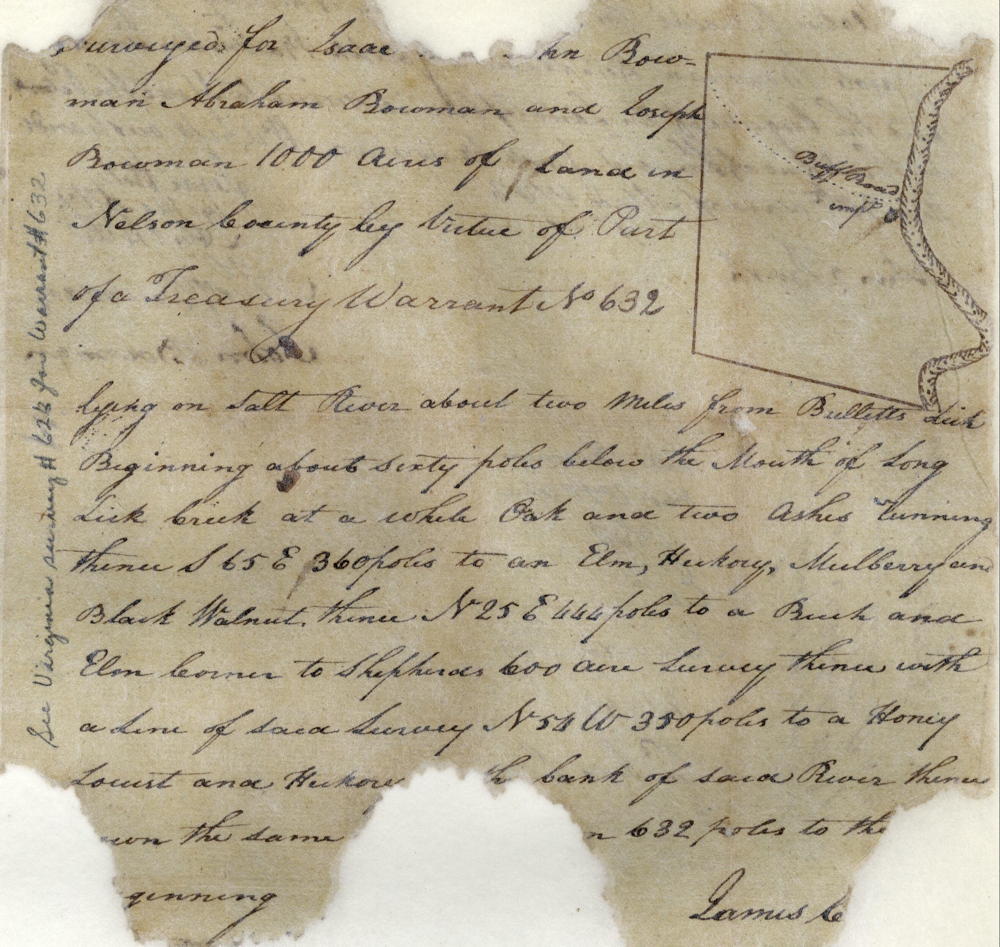 Surveyed for Isaac hn Bow-
man Abraham Bowman and Joseph
Bowman 1000 acres of Land in
Nelson County by Virtue of Part
of a Treasury Warrant No 632
lying on Salt River about two Miles from Bulletts Lick
Beginning about sixty poles below the Mouth of Long
Lick Creek at a white Oak and two Ashes running
thence S 65 E 360 poles to an Elm, Hickory, Mulberry and
Black Walnut. thence N 25 E 444 poles to a Buch and
Elm Corner to Shepherds 600 acre Survey thence with
a Line of said Survey N 54 W 350 poles to a Honey
Locust and Hickory h bank of said River thence
own the same n 632 poles to the
ginning
James
Buff Road
See Virginia survey # for Warrant # 632